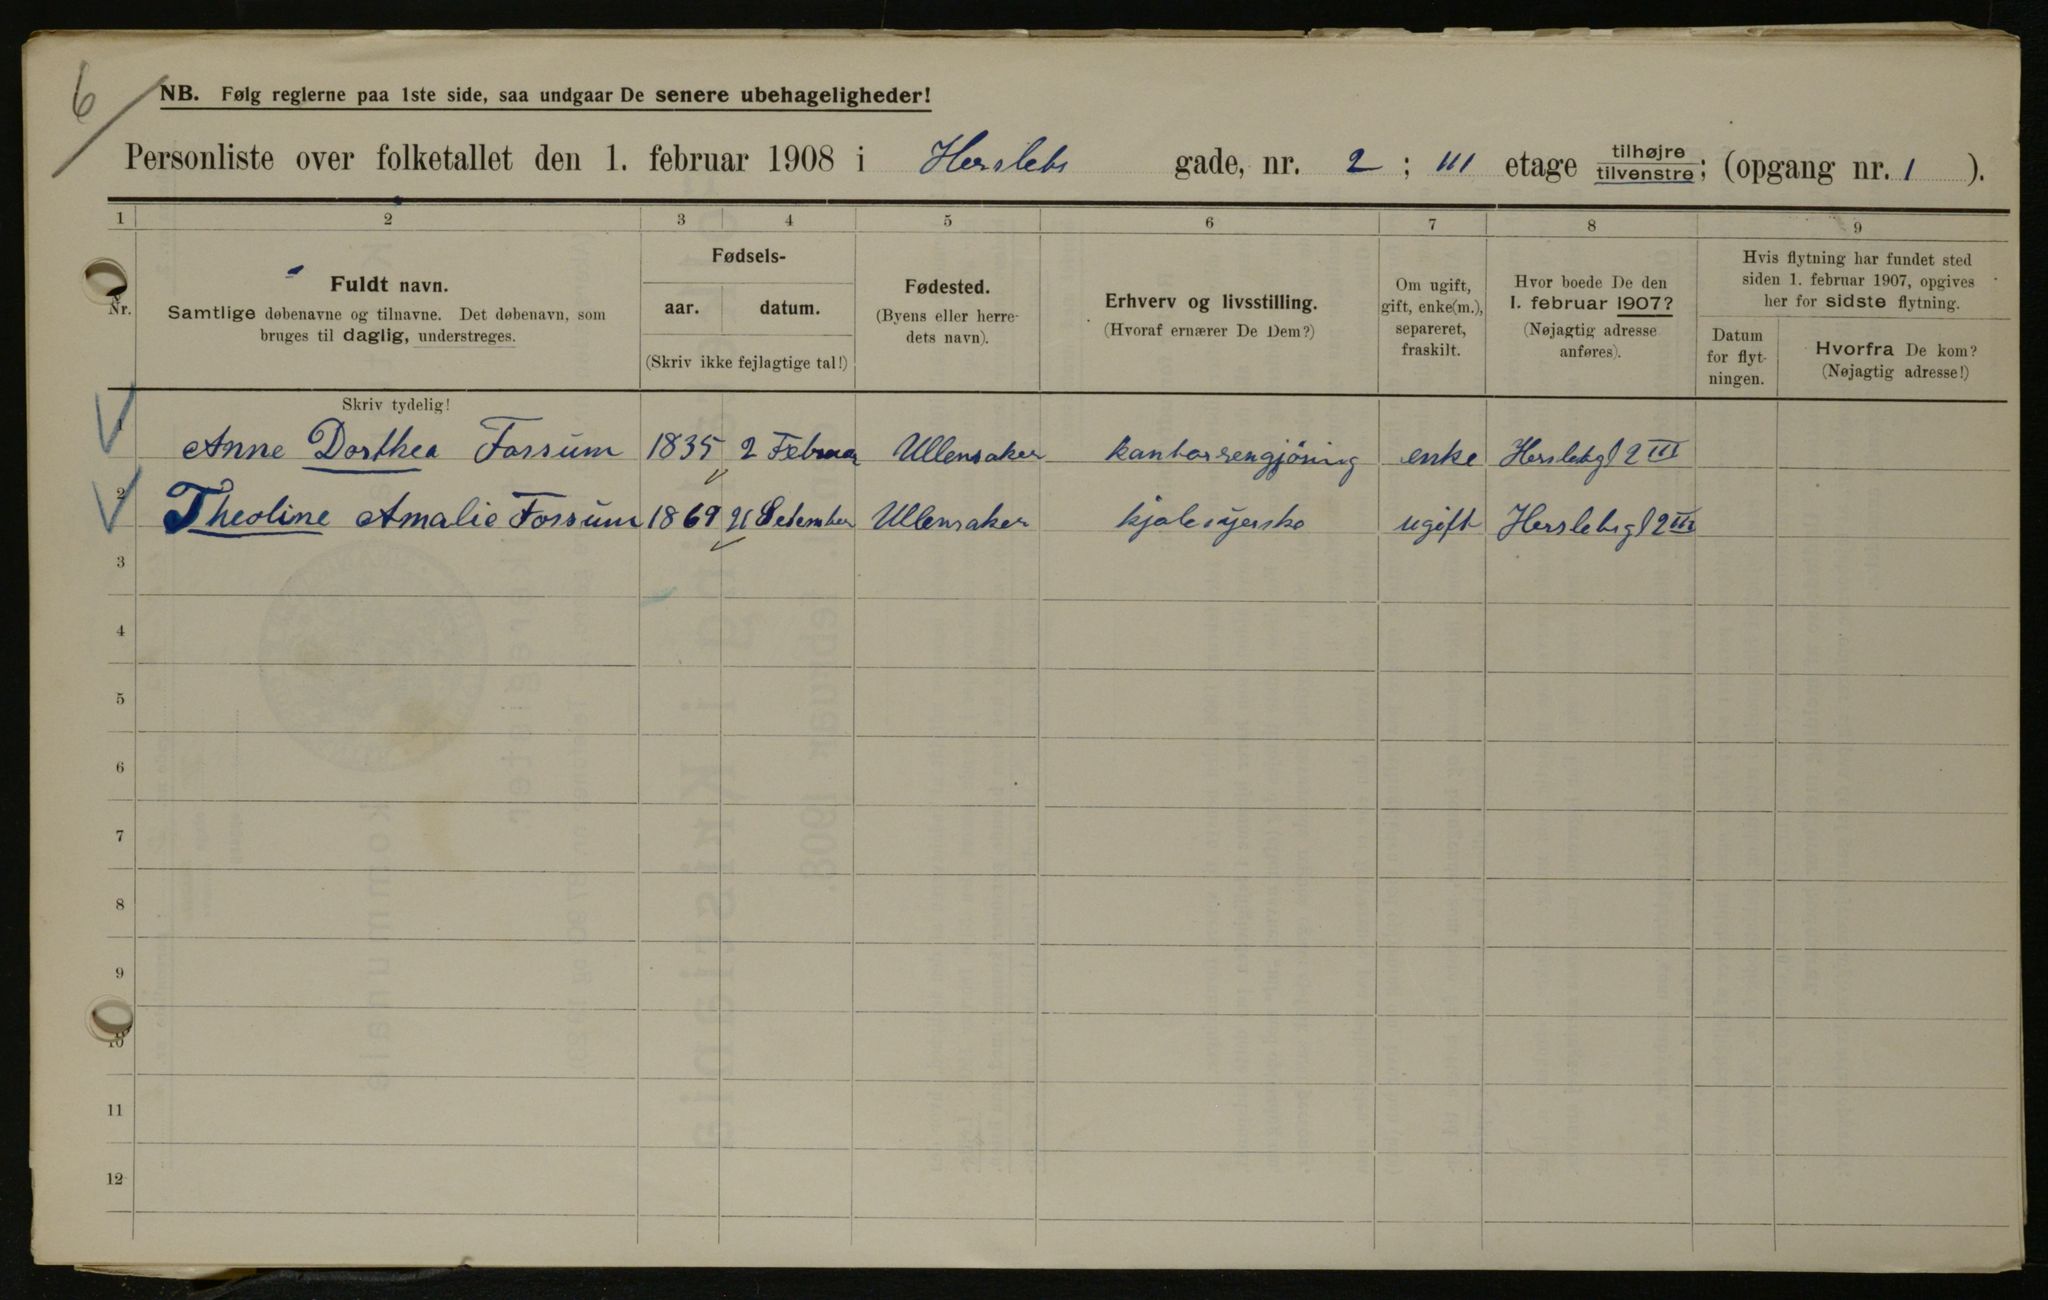 6
NB. Følg reglerne paa 1ste side, saa undgaar De senere ubehageligheder!
Personliste over folketallet den 1. februar 1908 i Herslebs gade, nr. 2 ; III etage tilhøjre tilvenstre; (opgang nr. 1 ).
1 2 3 4 5 6 7 8 9
Nr.
Fuldt navn.
Samtlige døbenavne og tilnavne. Det døbenavn, som
bruges til daglig, understreges.
Fødsels-
aar. datum.
(Skriv ikke fejlagtige tal!)
Fødested.
(Byens eller herre-
dets navn).
Erhverv og livsstilling.
(Hvoraf ernærer De Dem?)
Om ugift,
gift, enke(m.),
separeret,
fraskilt.
Hvor boede De den
1. februar 1907?
(Nøjagtig adresse
anføres).
Hvis flytning har fundet sted
siden 1. februar 1907, opgives
her for sidste flytning.
Datum
for flyt-
ningen.
Hvorfra De kom?
(Nøjagtig adresse!)
Skriv tydelig!
1 Anne Dorthea Fossum 1835 2 Februar Ullensaker kantorrengjöring enke Herslebgt 2 III
2 Theoline Amalie Fossum 1869 21 Setember Ullensaker kjolesyerske ugift Herslebsgt 2 III
3
4
5
6
7
8
9
10
11
12